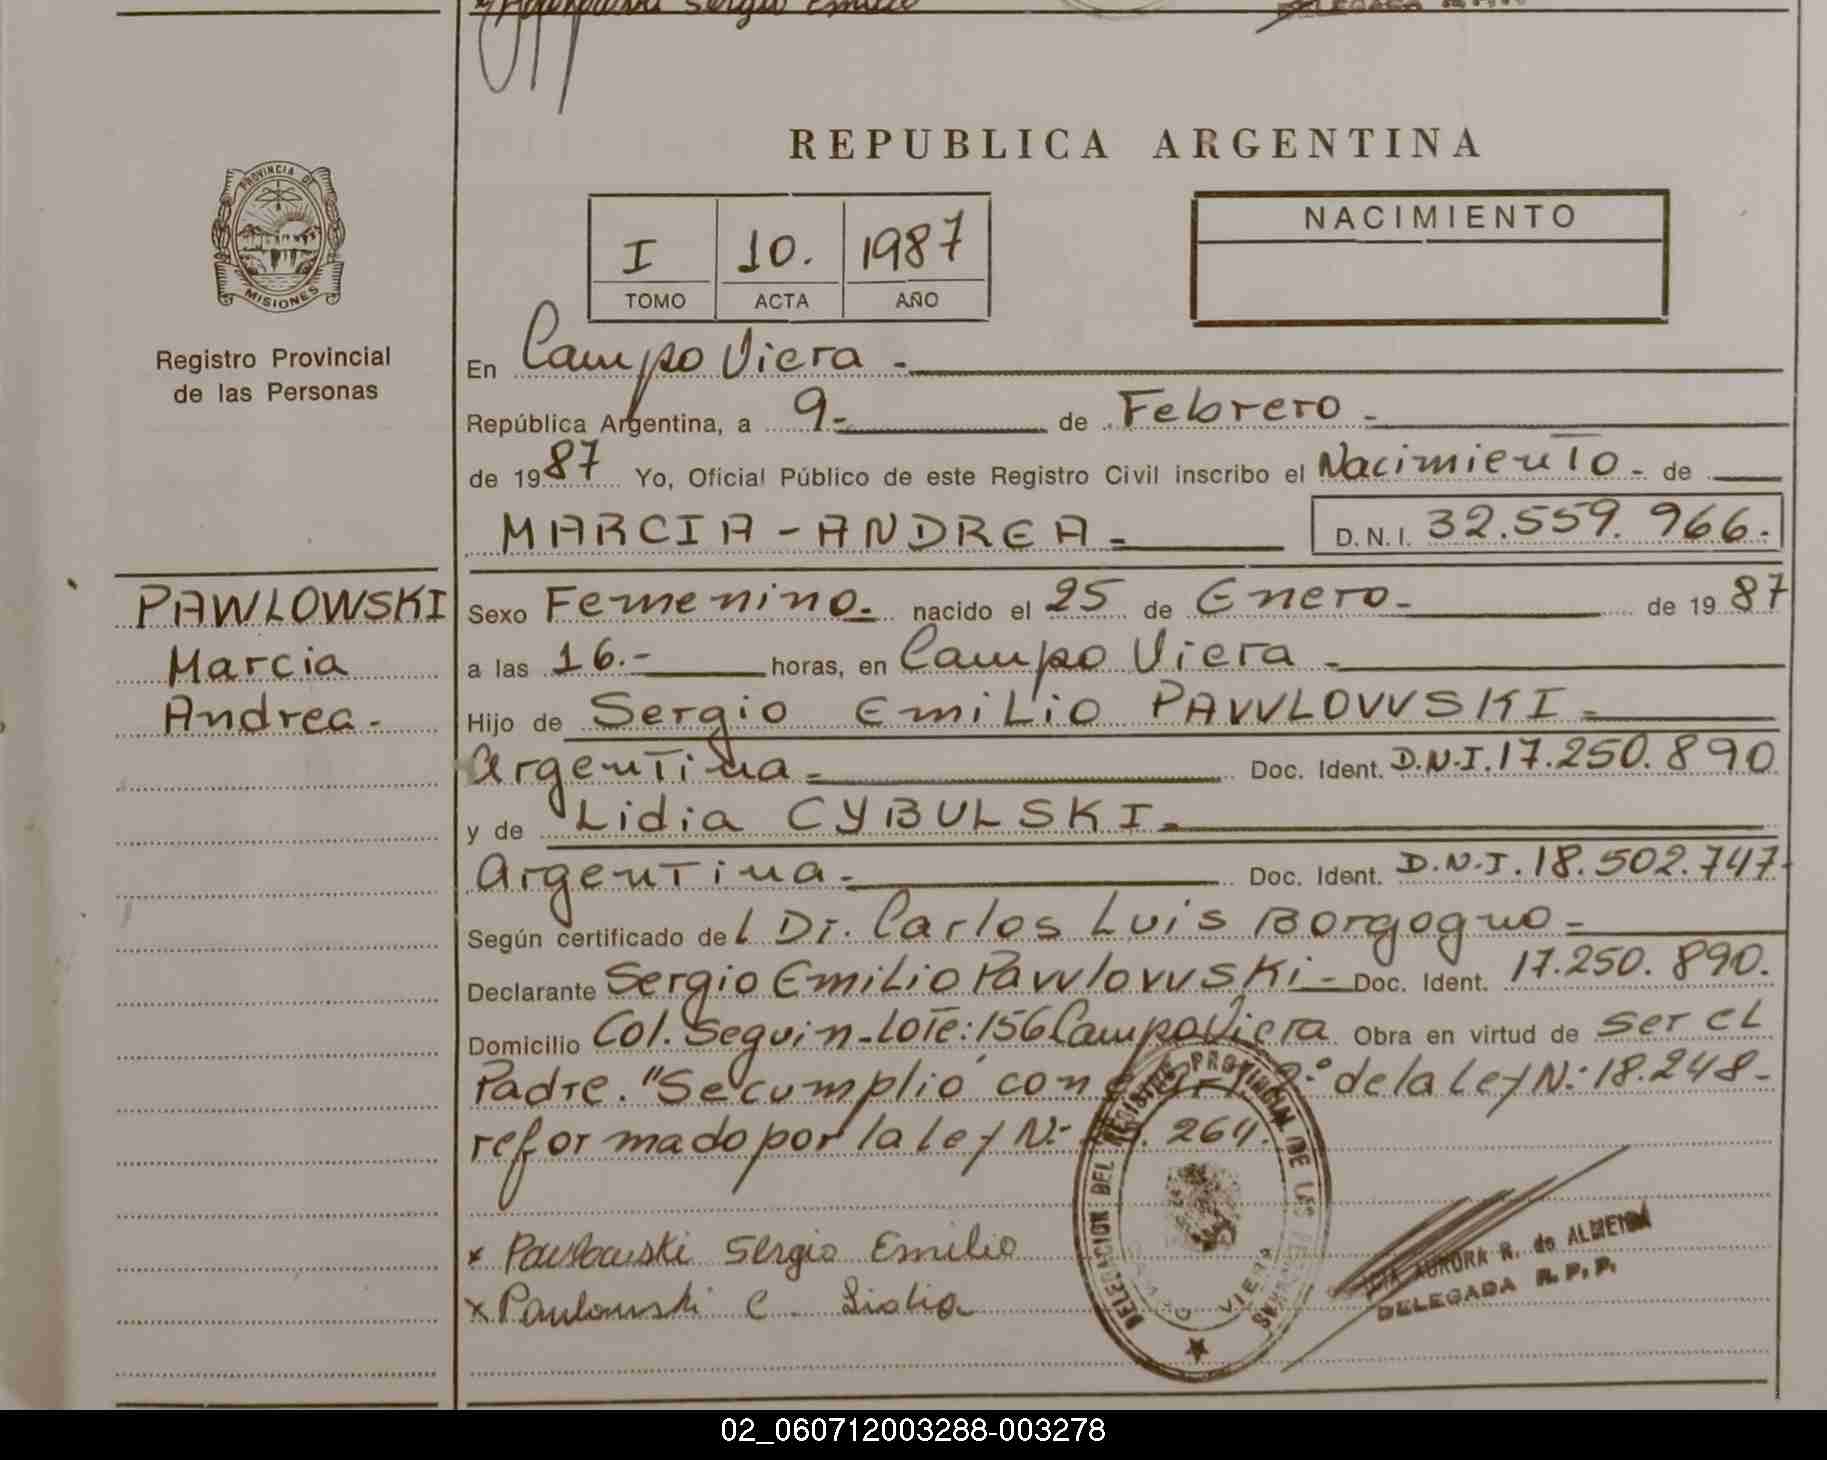 Sergio Emilio
DELEGADA R.P.P.
REPUBLICA ARGENTINA
PROVINCIA DE
MISIONES
Registro Provincial
de las Personas
I 10. 1987
TOMO ACTA AÑO
NACIMIENTO
En Campo Viera -
República Argentina, a 9- de Febrero -
de 1987 Yo, Oficial Público de este Registro Civil inscribo el Nacimiento - de
MARCIA - ANDREA - D.N.I. 32.559.966.
PAWLOWSKI
Marcia
Andrea -
Sexo Femenino - nacido el 25 de Enero - de 1987
a las 16.- horas, en Campo Viera -
Hijo de Sergio Emilio PAWLOWSKI -
Argentina - Doc. Ident. D.N.I. 17.250.890
y de Lidia CYBULSKI -
Argentina - Doc. Ident. D.N.I. 18.502.747-
Según certificado del Dr. Carlos Luis Borgogno -
Declarante Sergio Emilio Pawlowski - Doc. Ident. 17.250.890.
Domicilio Col. Seguin - Lote: 156 Campo Viera Obra en virtud de ser el
Padre. "Se cumplió con el Art. 2º de la Ley N.: 18.248-
reformado por la Ley N.- 264.
x Pawlowski Sergio Emilio
x Pawlowski C. Lidia
DELEGACION DEL REGISTRO PROVINCIAL DE LAS PERSONAS
CAMPO VIERA
AURORA R. de ALMEIDA
DELEGADA R.P.P.
02_060712003288-003278